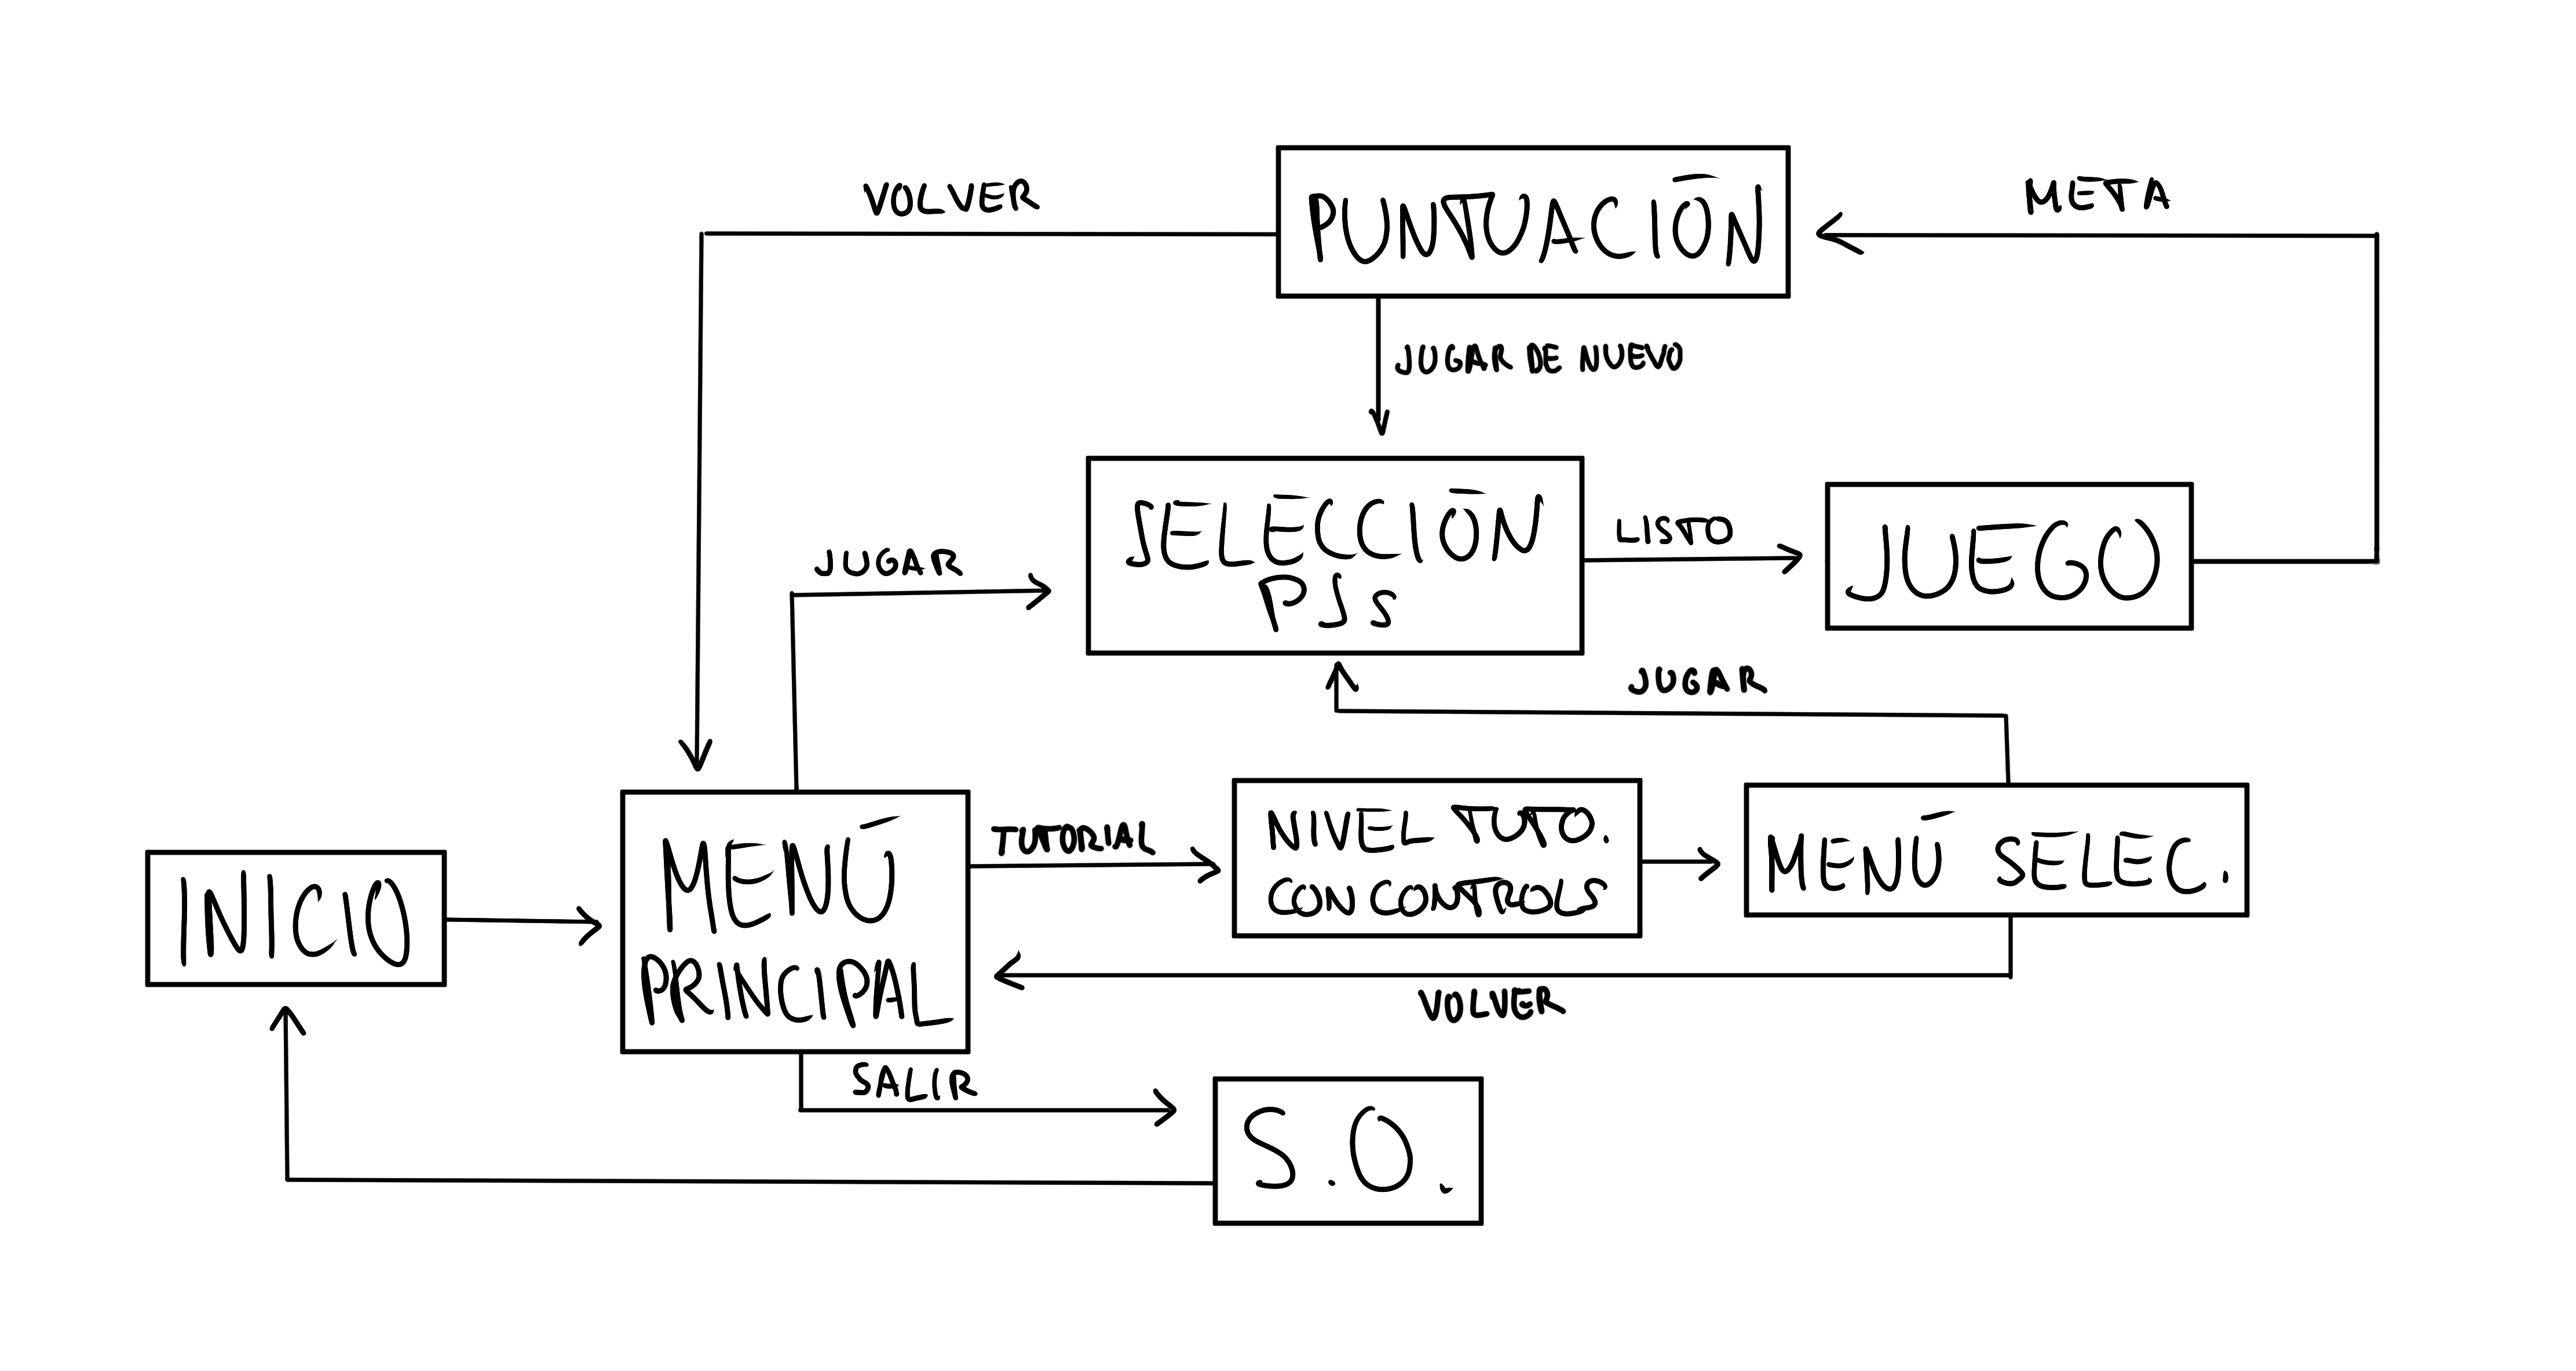 PUNTUACIÓN
VOLVER
META
JUGAR DE NUEVO
SELECCIÓN
PJs
LISTO
JUEGO
JUGAR
JUGAR
MENÚ
PRINCIPAL
TUTORIAL
NIVEL TUTO.
CON CONTROLS
MENÚ SELEC.
INICIO
VOLVER
SALIR
S.O.